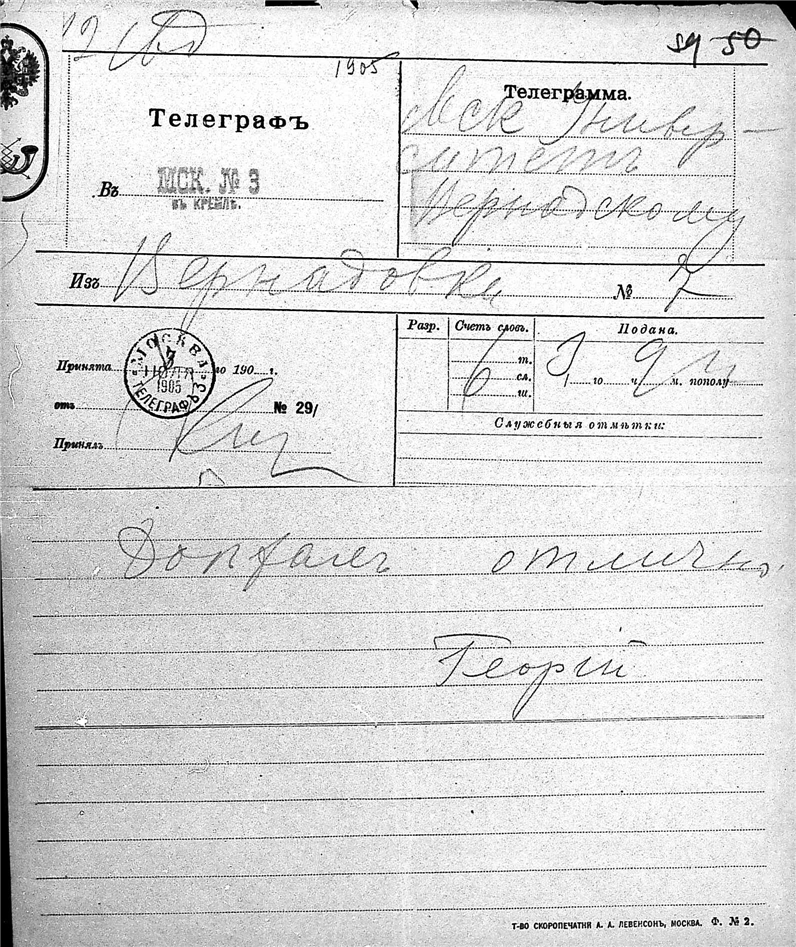 59 50
1905
Телеграфъ
Въ МСК. № 3
ВЪ КРЕМЛѢ.
Телеграмма.
Мск Универ-
ситетъ
Вернадскому
Изъ Вернадовки № 7
Принята 190 г.
МОСКВА
3
1905
ТЕЛЕГРАФЪ 3
отъ № 29/
Принялъ
Разр. Счетъ словъ. Подана.
6 т.
сл.
ш.
3 го ч. 9 м. пополу
Служебныя отмѣтки:
Доехалъ отлично
Георгій
Т-ВО СКОРОПЕЧАТНИ А. А. ЛЕВЕНСОНЪ, МОСКВА. Ф. № 2.